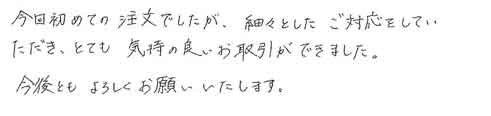 今回初めての注文でしたが、細々としたご対応をしてい
ただき、とても気持の良いお取引ができました。
今後ともよろしくお願いいたします。